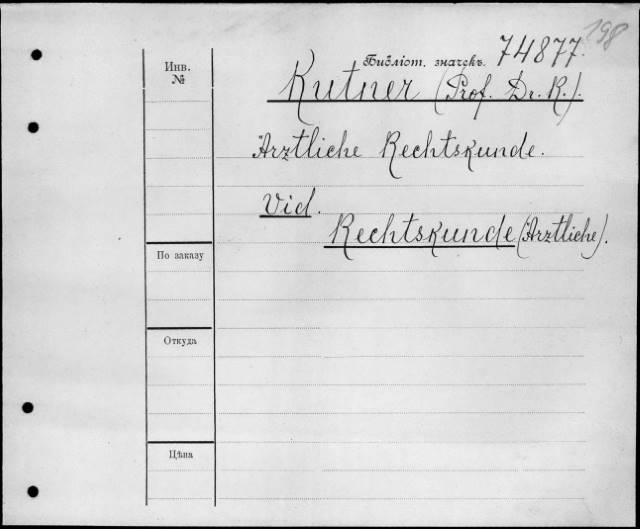 198
Библіот. значекъ. 74877.
Инв.
№
Kutner (Prof. Dr. R.).
Ärztliche Rechtskunde.
Vid.
Rechtskunde (Ärztliche).
По заказу
Откуда
Цѣна